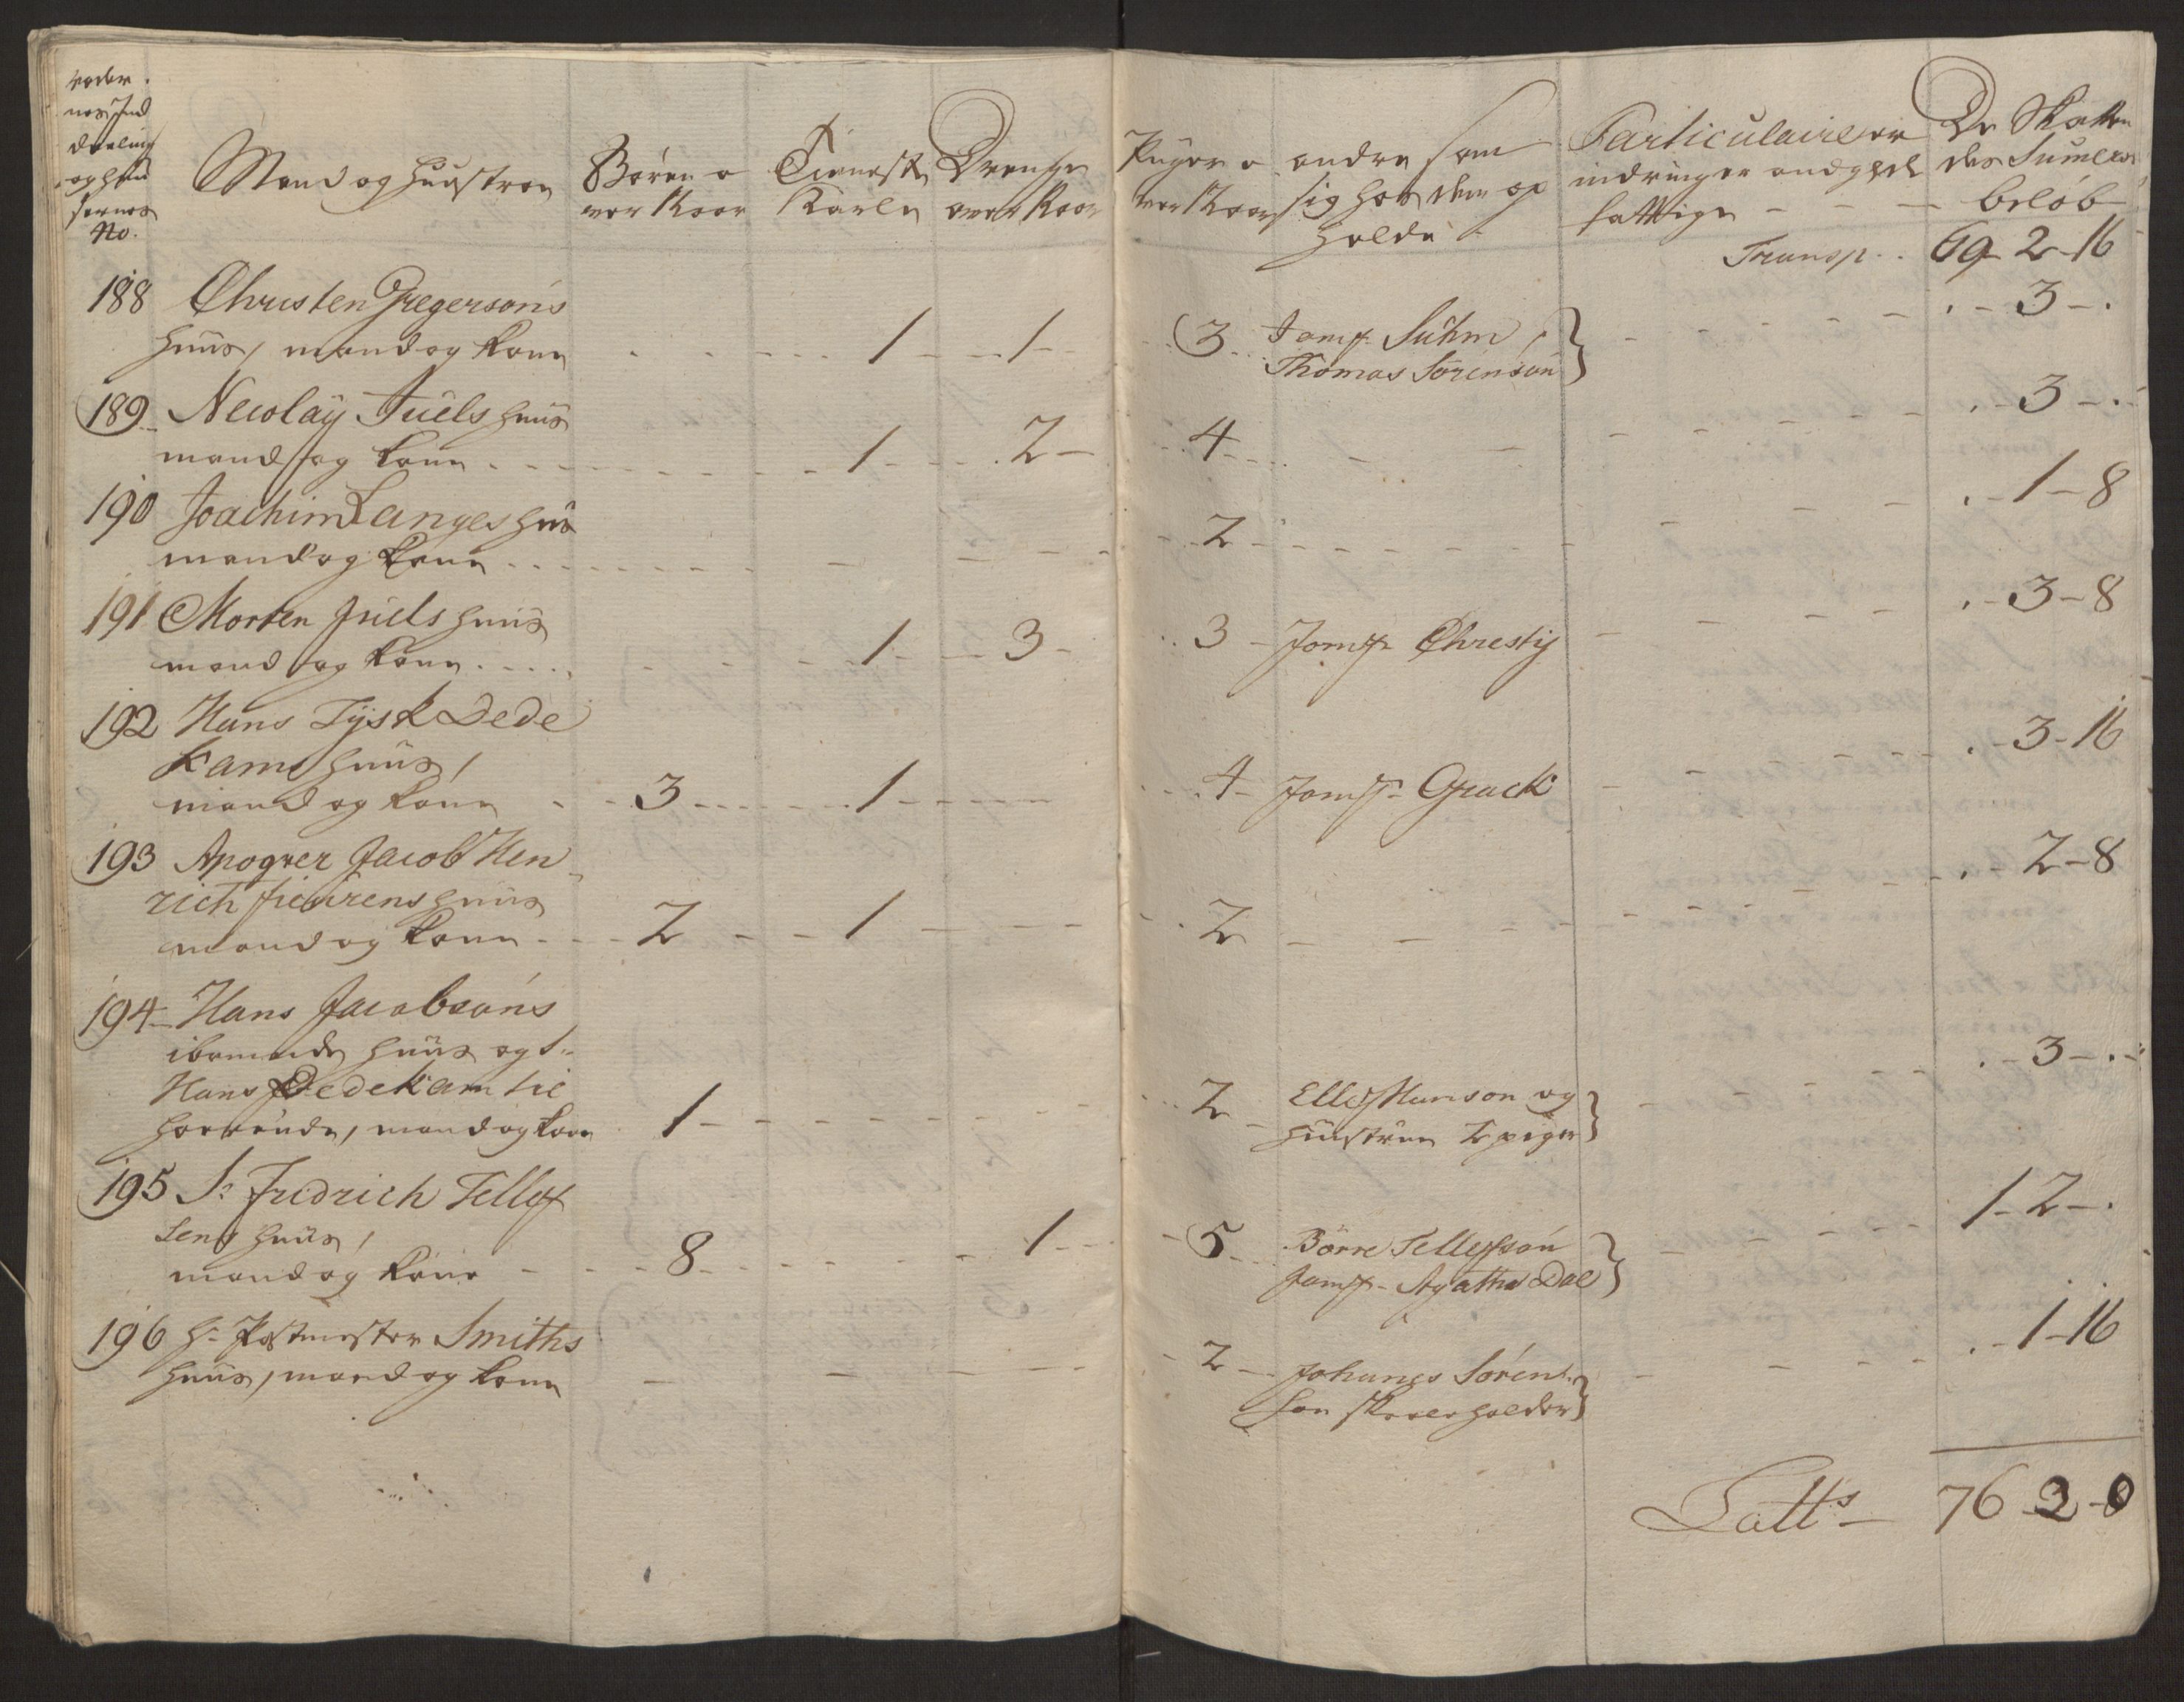 Roder-
nes Ind
deeling
og Huu
sernes
No.
Mand og Hustroe
Børen o
ver 1 Aar
Tienest
Karle
Drenge
over 1 Aar
Piiger o
ver 1 Aar
andre som
sig hos dem op
holde
Particulaire er
indringer andgaael
fattige
De Skatten
des Sumers
beløb
Transp. 69-2-16
188 Christen Gregersøns
huus, mand og Kone 1 1 3 Jomf. Suhm,
Thomas Sørensøn .-3-.
189 Nicolaÿ Juels huus
mand og Kone 1 2 4 .-3-.
190 Joachim Langes huus
mand og Kone 2 .-1-8
191 Morten Juels huus
mand og Kone 1 3 3 Jomf. Christÿ .-3-8
192 Hans Tÿsk Dede
Kams huus,
mand og Kone 3 1 4 Jomf. Grack .-3-16
193 Apoqver Jacob Hen
rich huus
mand og Kone 2 1 2 .-2-8
194 Hans Jacobsøns
iboende huus og S.
Hans Dedekam til
hørende, mand og Kone 1 2 Ellef Hanson og
Hustrue 2 piger .-3-.
195 Sr. Fridrich Tellef
sens huus,
mand og Kone 8 1 5 Børre Tellefsøn
Jomf. Agatha Dal 1-2-.
196 Hr. Postmester Smiths
huus, mand og Kone 2 Johanes Sørens.
søn Skoeleholder .-1-16
Latts 76-2-0